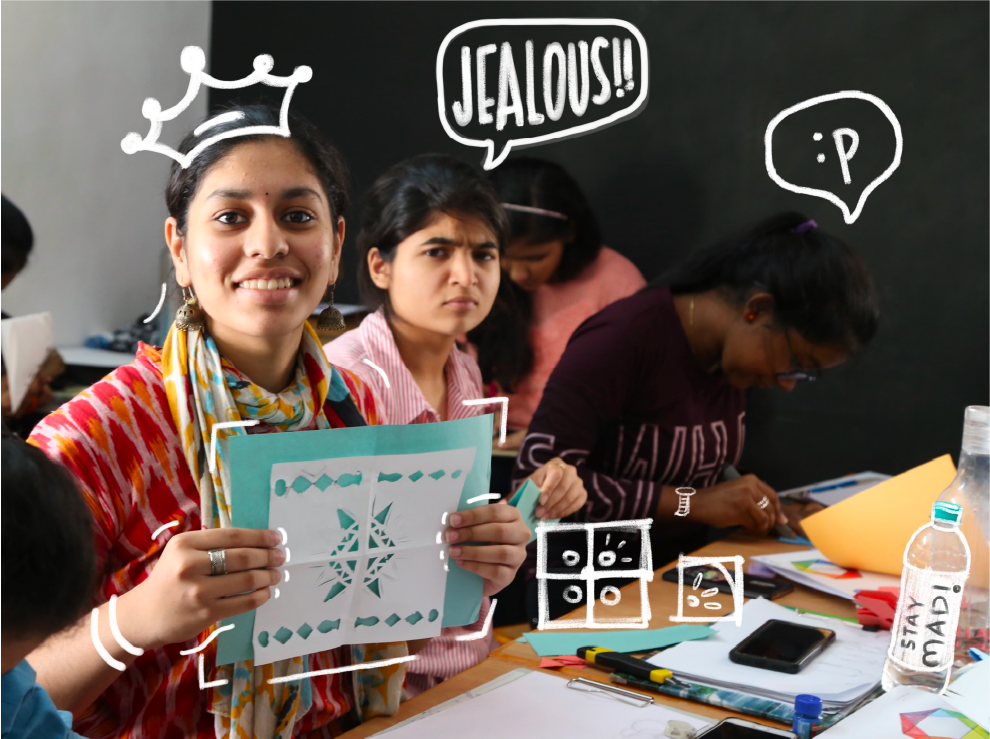 JEALOUS!!
:P
STAY
MAD!